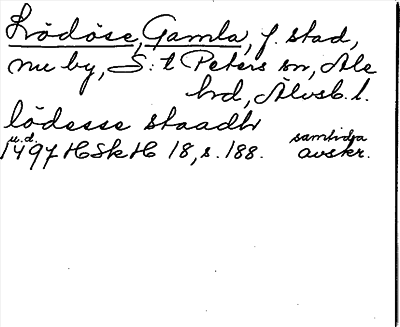 Lödöse, Gamla, f. stad,
nu by, S:t Peters sn, Ale
hd, Älvsb. l.
lödesse staadh
u.d. samtida
1497 HSkH 18, s. 188. avskr.